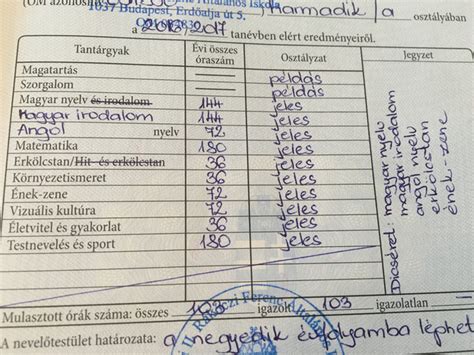 (OM azonosító Általános Iskola
1037 Budapest, Erdőalja út 5.
harmadik / a osztályában
a 2016-2017 tanévben elért eredményeiről.
Tantárgyak Évi összes óraszám: Osztályzat Jegyzet
Magatartás példás
Szorgalom példás
Magyar nyelv és irodalom 144 jeles
Magyar irodalom 144 jeles
Angol nyelv 72 jeles
Matematika 180 jeles
Erkölcstan/Hit- és erkölcstan 36 jeles
Környezetismeret 36 jeles
Ének-zene 72 jeles
Vizuális kultúra 72 jeles
Életvitel és gyakorlat 36 jeles
Testnevelés és sport 180 jeles
Dicséret: magyar nyelv
magyar irodalom
angol nyelv
erkölcstan
ének-zene
Mulasztott órák száma: összes 103 igazolt 103 igazolatlan
II. Rákóczi Ferenc Általános
A nevelőtestület határozata: a negyedik évfolyamba léphet